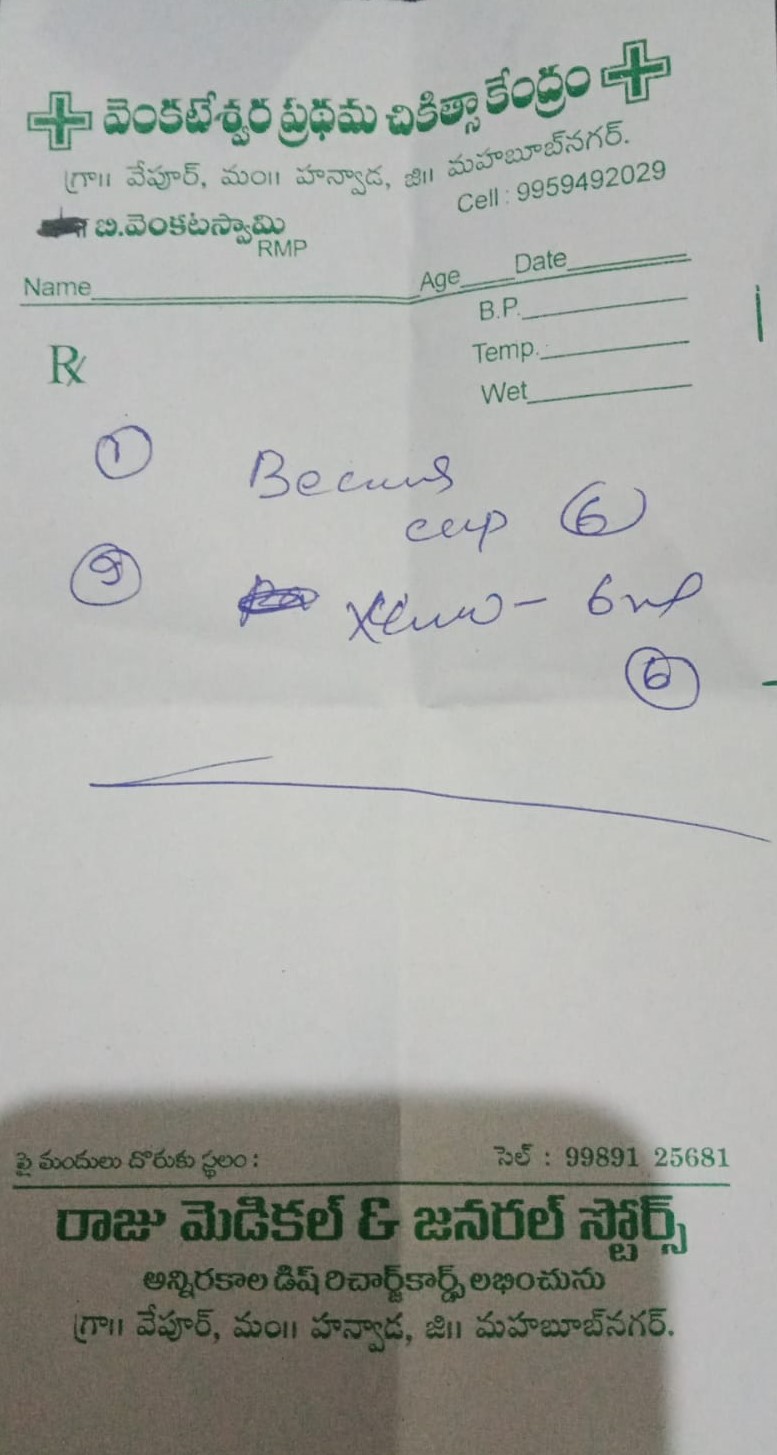 వెంకటేశ్వర ప్రథమ చికిత్సా కేంద్రం
గ్రా॥ వేపూర్, మం॥ హన్వాడ, జి॥ మహబూబ్‌నగర్.
Cell : 9959492029
బి.వెంకటస్వామి
RMP
Name Age Date
B.P.
Temp.
Wet
Rx
1
cap 6
2
6
పై మందులు దొరుకు స్థలం : సెల్ : 99891 25681
రాజు మెడికల్ & జనరల్ స్టోర్స్
అన్నిరకాల డిష్ రిచార్జ్‌కార్డ్స్ లభించును
గ్రా॥ వేపూర్, మం॥ హన్వాడ, జి॥ మహబూబ్‌నగర్.